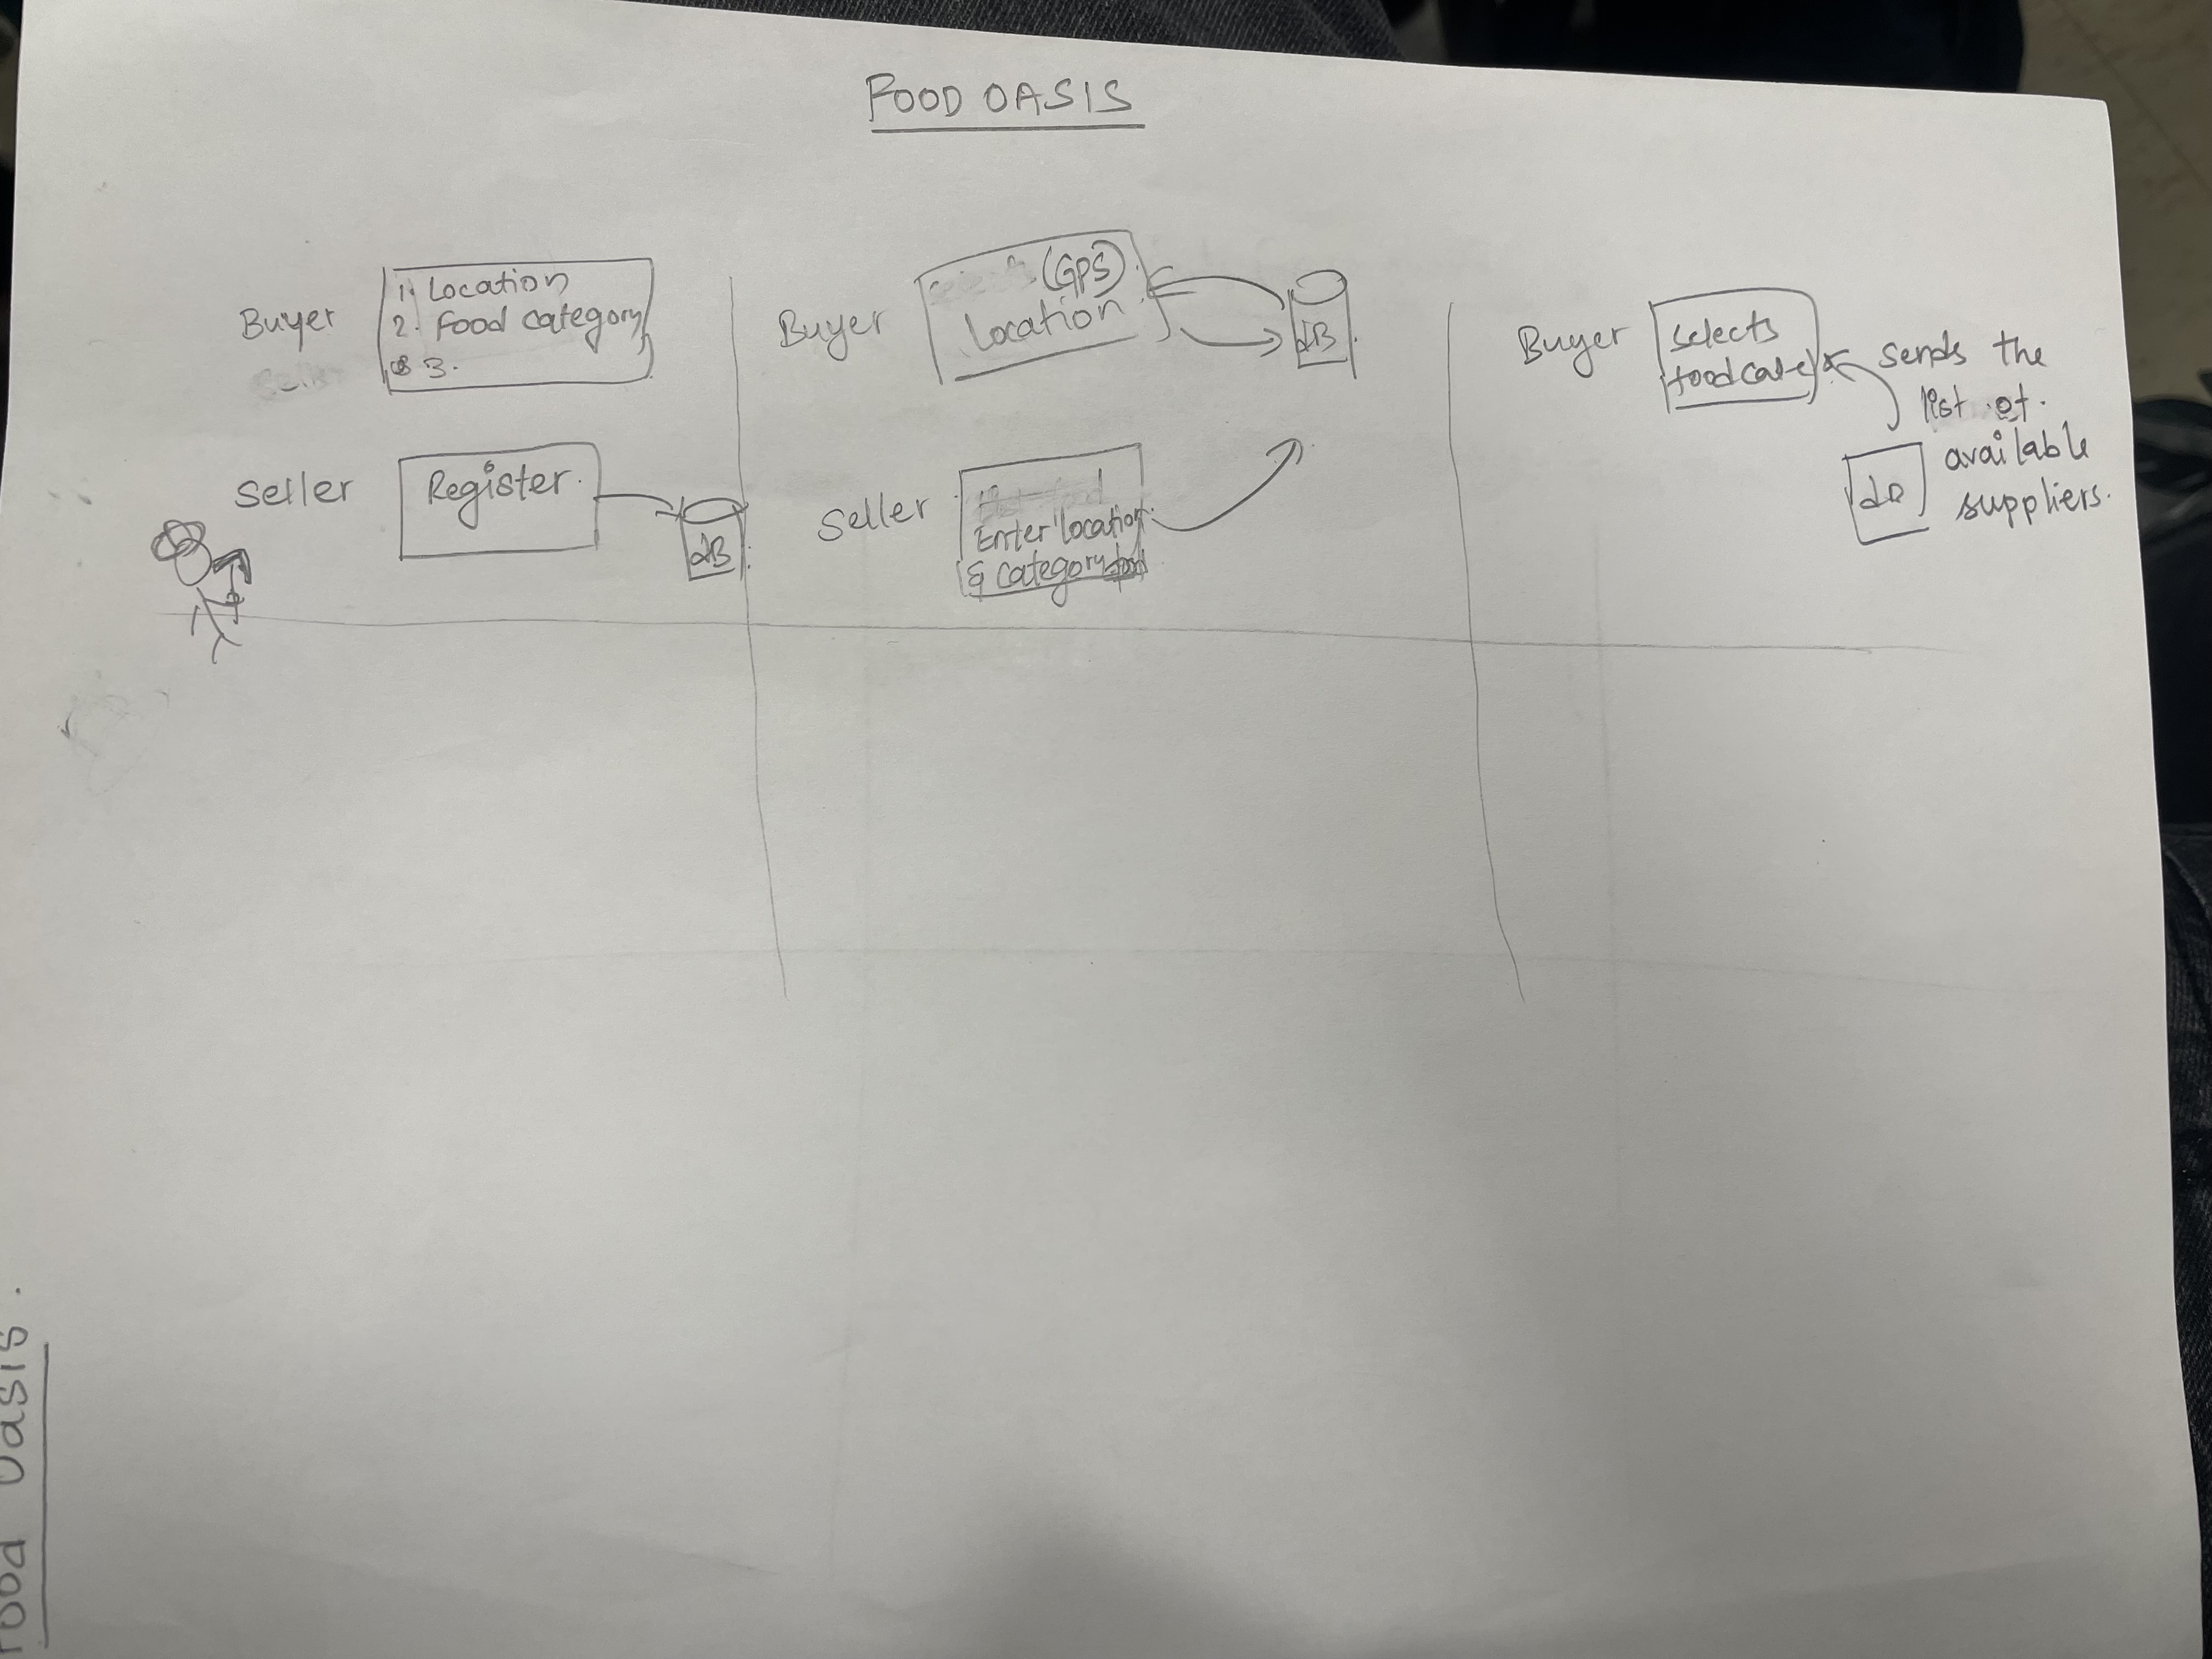 Food Oasis.
FOOD OASIS
Buyer
1. Location
2. Food category
3.
Seller
Register.
dB
Buyer
(GPS)
location
dB
Seller
Enter location
& category
Buyer
selects
sends the
list of.
available
suppliers.